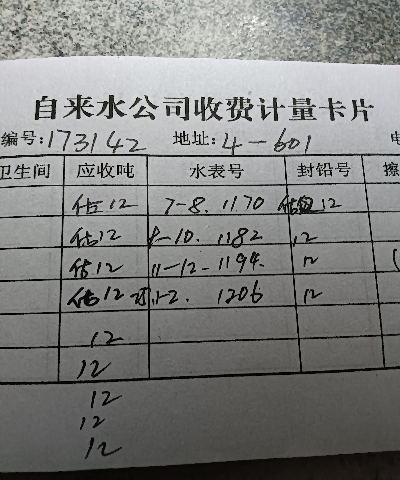 自来水公司收费计量卡片
编号:173142 地址:4-601
卫生间 应收吨 水表号 封铅号 擦
估12 7-8. 1170 12
估12 9-10. 1182 12
估12 11-12- 1194. 12
估12 1-2. 1206 12
12
12
12
12
12